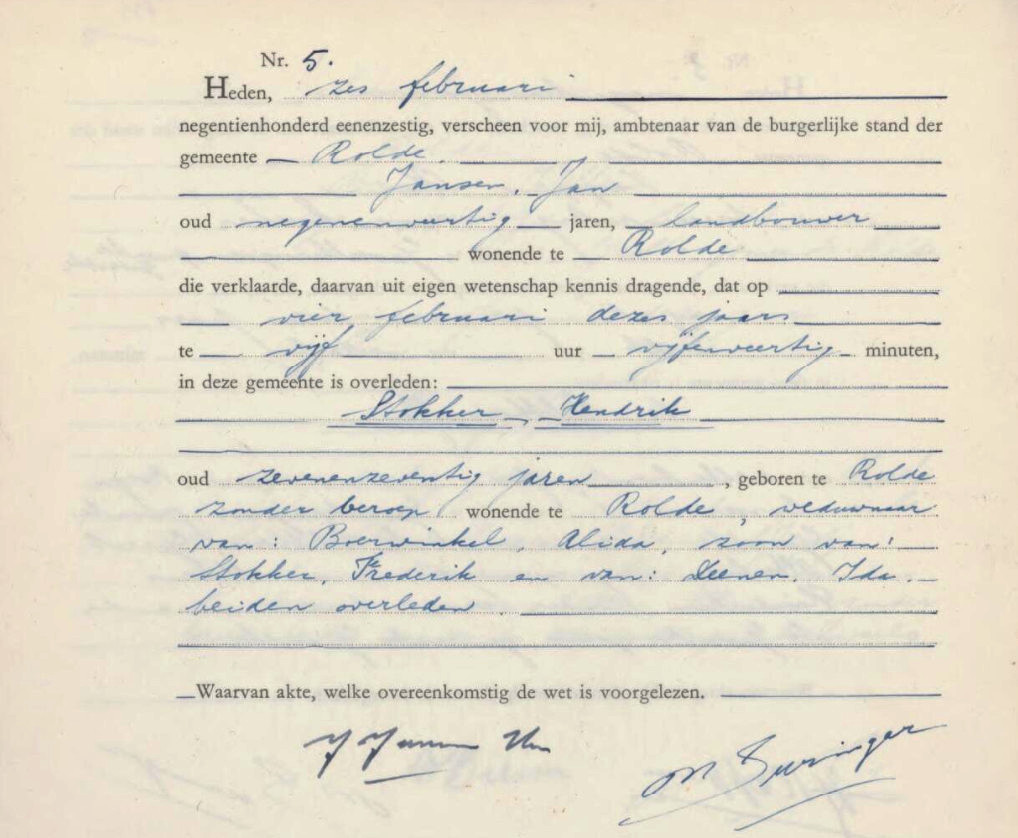 Nr. 5.
Heden, zes februari
negentienhonderd eenenzestig, verscheen voor mij, ambtenaar van de burgerlijke stand der
gemeente Rolde.
Jansen, Jan
oud negenenveertig jaren, landbouwer
wonende te Rolde
die verklaarde, daarvan uit eigen wetenschap kennis dragende, dat op
vier februari dezes jaars
te vijf uur vijfenveertig minuten,
in deze gemeente is overleden:
Stokker, Hendrik
oud zevenenzeventig jaren, geboren te Rolde
zonder beroep wonende te Rolde, weduwnaar
van: Boerwinkel, Alida, zoon van:
Stokker, Frederik en van: Ida.
beiden overleden.
Waarvan akte, welke overeenkomstig de wet is voorgelezen.